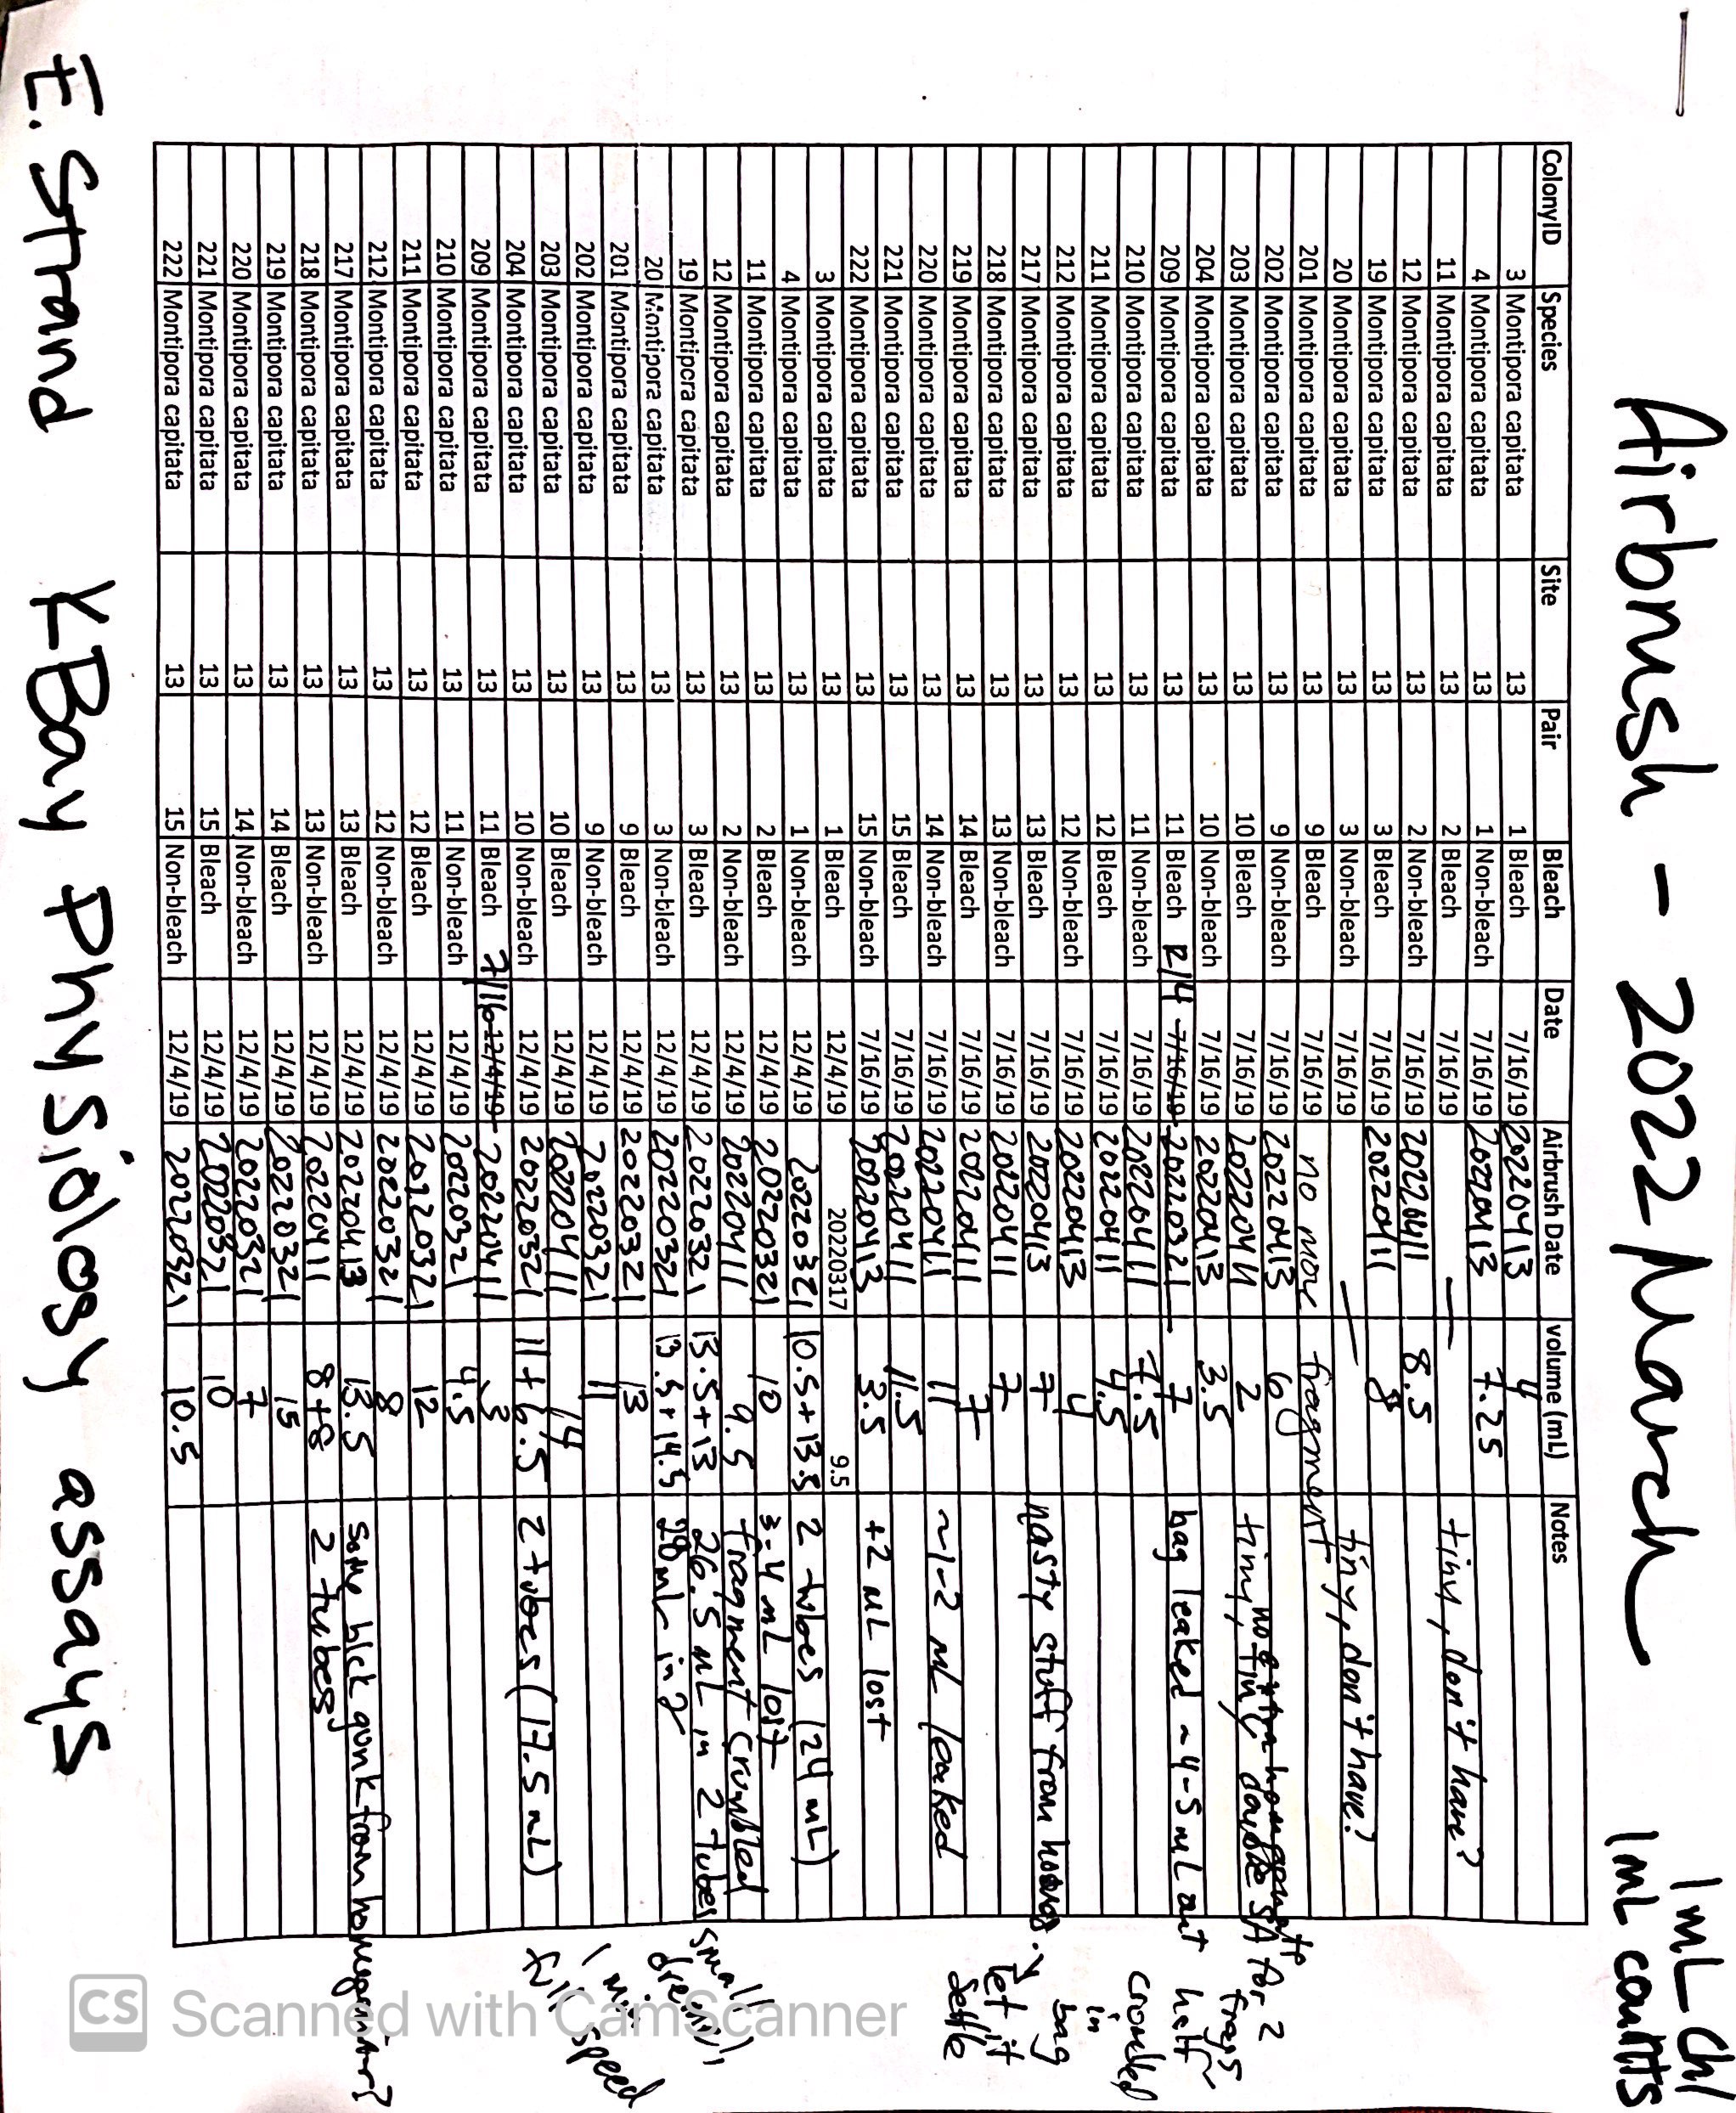 Airbrush - 2022 March
1mL Chl
1mL counts
ColonyID Species Site Pair Bleach Date Airbrush Date volume (mL) Notes
3 Montipora capitata 13 1 Bleach 7/16/19 20220413 4
4 Montipora capitata 13 1 Non-bleach 7/16/19 20220413 7.25
11 Montipora capitata 13 2 Bleach 7/16/19 — tiny, don't have?
12 Montipora capitata 13 2 Non-bleach 7/16/19 20220411 8.5
19 Montipora capitata 13 3 Bleach 7/16/19 20220411 8
20 Montipora capitata 13 3 Non-bleach 7/16/19 — tiny, don't have?
201 Montipora capitata 13 9 Bleach 7/16/19 no more fragment
202 Montipora capitata 13 9 Non-bleach 7/16/19 20220413 6 no extra homogenate
203 Montipora capitata 13 10 Bleach 7/16/19 20220411 2 tiny, no tiny, double SA for 2 frags
204 Montipora capitata 13 10 Non-bleach 7/16/19 20220413 3.5
209 Montipora capitata 13 11 Bleach 12/4 7/16/19 20220321 7 bag leaked ~4-5 mL out half
210 Montipora capitata 13 11 Non-bleach 7/16/19 20220411 7.5 crumbled
211 Montipora capitata 13 12 Bleach 7/16/19 20220411 4.5 in
212 Montipora capitata 13 12 Non-bleach 7/16/19 20220413 4 bag
217 Montipora capitata 13 13 Bleach 7/16/19 20220413 7 nasty stuff from homog.
218 Montipora capitata 13 13 Non-bleach 7/16/19 20220411 7 let it
219 Montipora capitata 13 14 Bleach 7/16/19 20220411 7 settle
220 Montipora capitata 13 14 Non-bleach 7/16/19 20220411 11 ~1-2 mL leaked
221 Montipora capitata 13 15 Bleach 7/16/19 20220411 11.5
222 Montipora capitata 13 15 Non-bleach 7/16/19 20220413 3.5 +2 mL lost
3 Montipora capitata 13 1 Bleach 12/4/19 20220317 9.5
4 Montipora capitata 13 1 Non-bleach 12/4/19 20220321 10.5+13.5 2 tubes (24 mL)
11 Montipora capitata 13 2 Bleach 12/4/19 20220321 10 3-4 mL lost
12 Montipora capitata 13 2 Non-bleach 12/4/19 20220411 9.5 fragment crumbled
19 Montipora capitata 13 3 Bleach 12/4/19 20220321 13.5+13 26.5 mL in 2 tubes small
20 Montipora capitata 13 3 Non-bleach 12/4/19 20220321 13.5+14.5 28 mL in 2
201 Montipora capitata 13 9 Bleach 12/4/19 20220321 13
202 Montipora capitata 13 9 Non-bleach 12/4/19 20220321 11 1 min
203 Montipora capitata 13 10 Bleach 12/4/19 20220411 14 full speed
204 Montipora capitata 13 10 Non-bleach 12/4/19 20220321 11+6.5 2 tubes (17.5 mL)
209 Montipora capitata 13 11 Bleach 7/16 12/4/19 20220411 3
210 Montipora capitata 13 11 Non-bleach 12/4/19 20220321 4.5
211 Montipora capitata 13 12 Bleach 12/4/19 20220321 12
212 Montipora capitata 13 12 Non-bleach 12/4/19 20220321 8
217 Montipora capitata 13 13 Bleach 12/4/19 20220413 13.5 some blck gunk from homogenizer?
218 Montipora capitata 13 13 Non-bleach 12/4/19 20220411 8+8 2 tubes
219 Montipora capitata 13 14 Bleach 12/4/19 20220321 15
220 Montipora capitata 13 14 Non-bleach 12/4/19 20220321 7
221 Montipora capitata 13 15 Bleach 12/4/19 20220321 10
222 Montipora capitata 13 15 Non-bleach 12/4/19 20220321 10.5
E. Strand KBay Physiology assays
CS Scanned with CamScanner